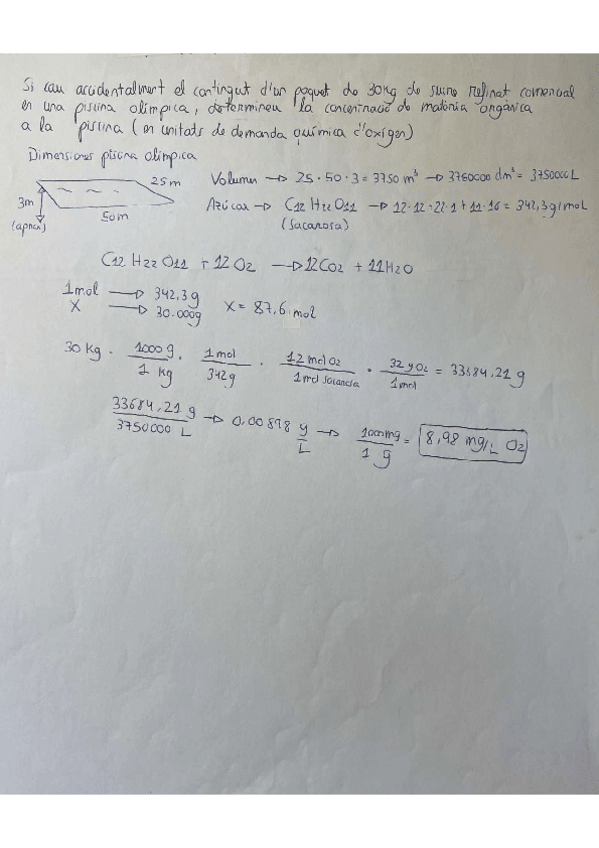 Si cau accidentalment el contingut d'un paquet de 30Kg de sucre refinat comercial
en una piscina olímpica, determineu la concentració de matèria orgànica
a la piscina (en unitats de demanda química d'oxigen)
Dimensiones piscina olímpica
25m
3m
(aprox)
50m
Volumen → 25·50·3 = 3750 m³ → 3750000 dm³ = 3750000L
Azúcar → C12 H22 O11 → 12·12+22·1+11·16 = 342,3g/mol
(Sacarosa)
C12 H22 O11 + 12 O2 → 12CO2 + 11H2O
1mol → 342.3g
X → 30.000g X = 87,6 mol
30 Kg · 1000 g / 1 kg · 1 mol / 342g · 12 mol O2 / 1 mol sacarosa · 32 g O2 / 1 mol = 33684,21 g
33684,21 g / 3750000 L → 0,00898 g/L → 1000mg / 1 g = 8,98 mg/L O2